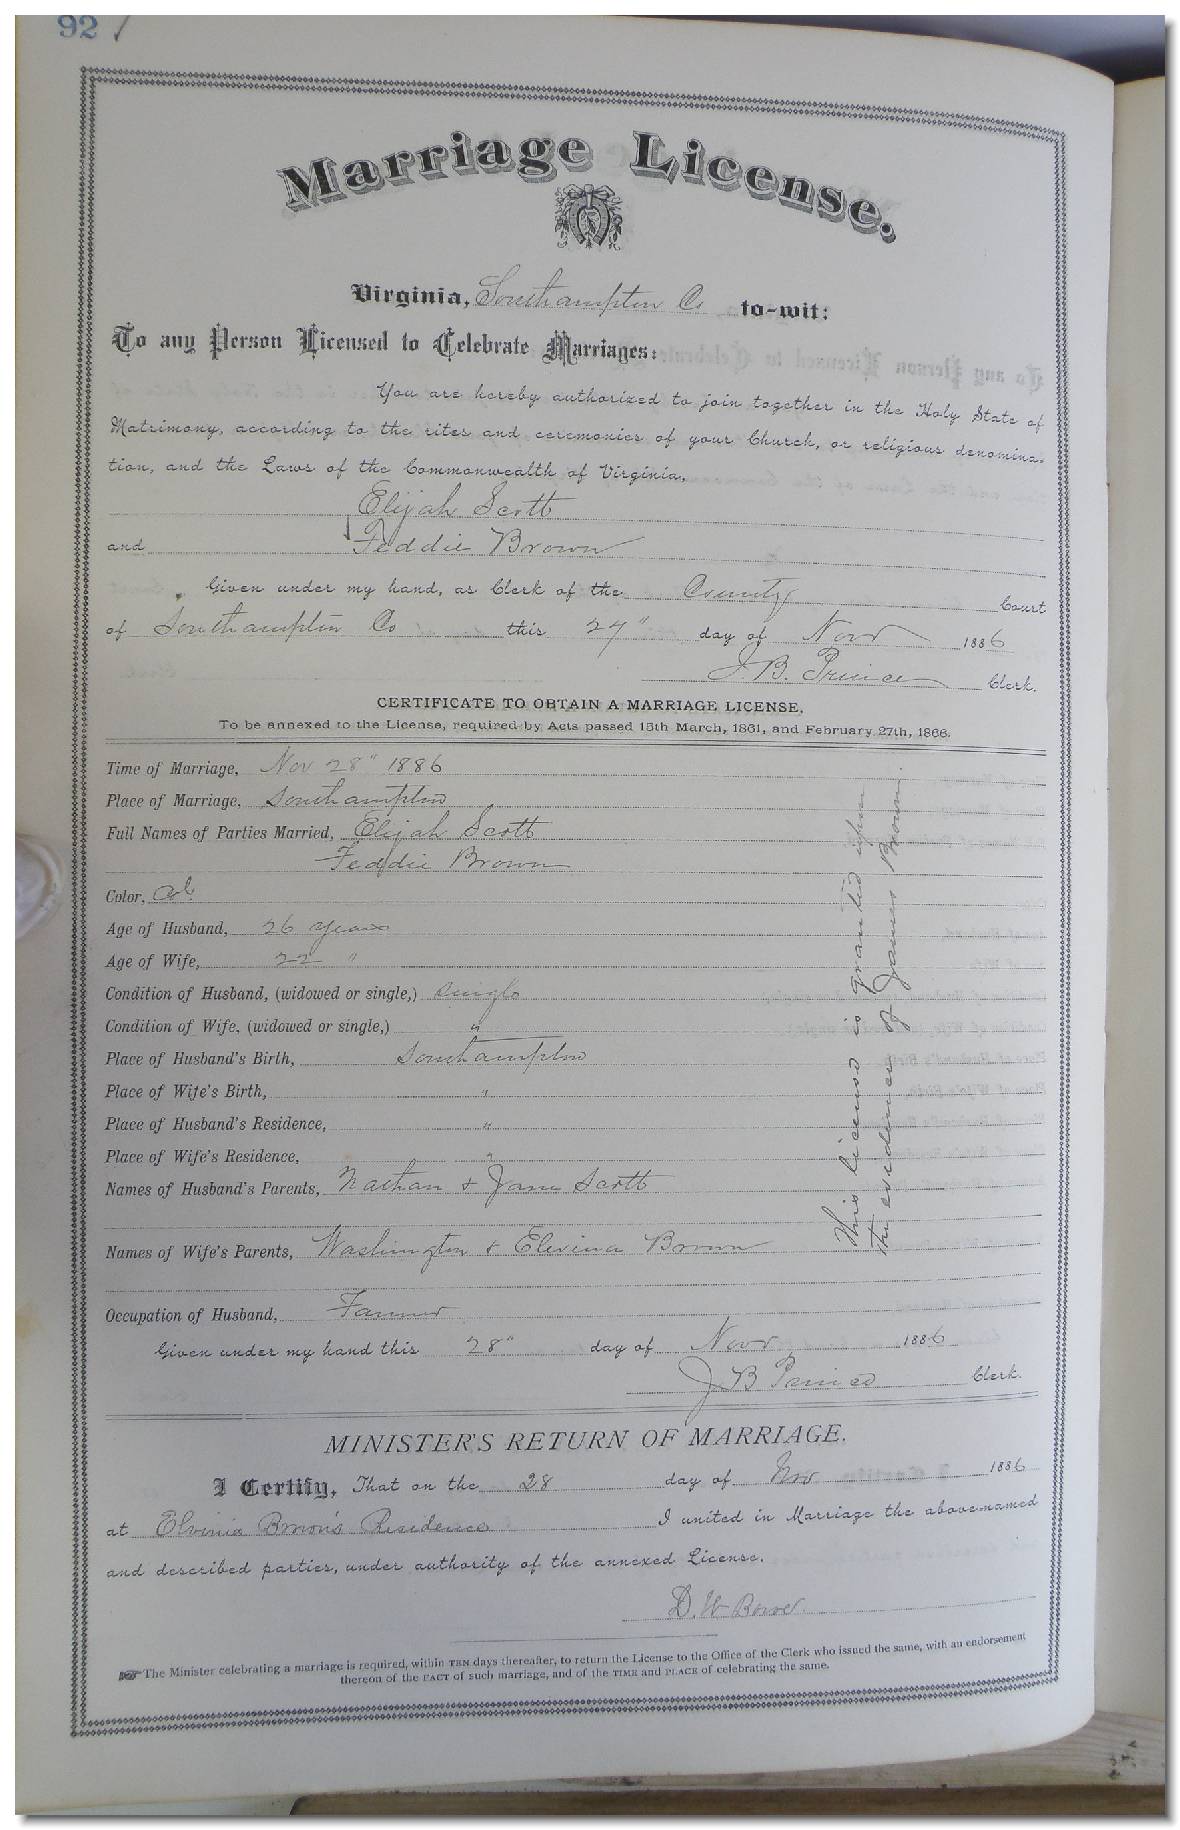 92
Marriage License.
Virginia, Southampton Co to-wit:
To any Person Licensed to Celebrate Marriages:
You are hereby authorized to join together in the Holy State of
Matrimony, according to the rites and ceremonies of your Church, or religious denomina-
tion, and the Laws of the Commonwealth of Virginia,
Elijah Scott
and Feddie Brown
Given under my hand, as Clerk of the County Court
of Southampton Co this 27" day of Novr 1886
J. B. Prince Clerk.
CERTIFICATE TO OBTAIN A MARRIAGE LICENSE,
To be annexed to the License, required by Acts passed 15th March, 1861, and February 27th, 1866.
Time of Marriage, Nov 28" 1886
Place of Marriage, Southampton
Full Names of Parties Married, Elijah Scott
Feddie Brown
Color, Col
Age of Husband, 26 years
Age of Wife, 22 "
Condition of Husband, (widowed or single,) single
Condition of Wife, (widowed or single,) "
Place of Husband's Birth, Southampton
Place of Wife's Birth, "
Place of Husband's Residence, "
Place of Wife's Residence, "
Names of Husband's Parents, Nathan & Jane Scott
Names of Wife's Parents, Washington & Elevina Brown
Occupation of Husband, Farmer
This license is granted upon
the evidence of James Brown.
Given under my hand this 28" day of Novr 1886
J B Prince Clerk.
MINISTER'S RETURN OF MARRIAGE.
I Certify, That on the 28 day of Nov 1886
at Elvinia Brown's Residence I united in Marriage the above-named
and described parties, under authority of the annexed License.
D. W.
☞The Minister celebrating a marriage is required, within TEN days thereafter, to return the License to the Office of the Clerk who issued the same, with an endorsement
thereon of the FACT of such marriage, and of the TIME and PLACE of celebrating the same.